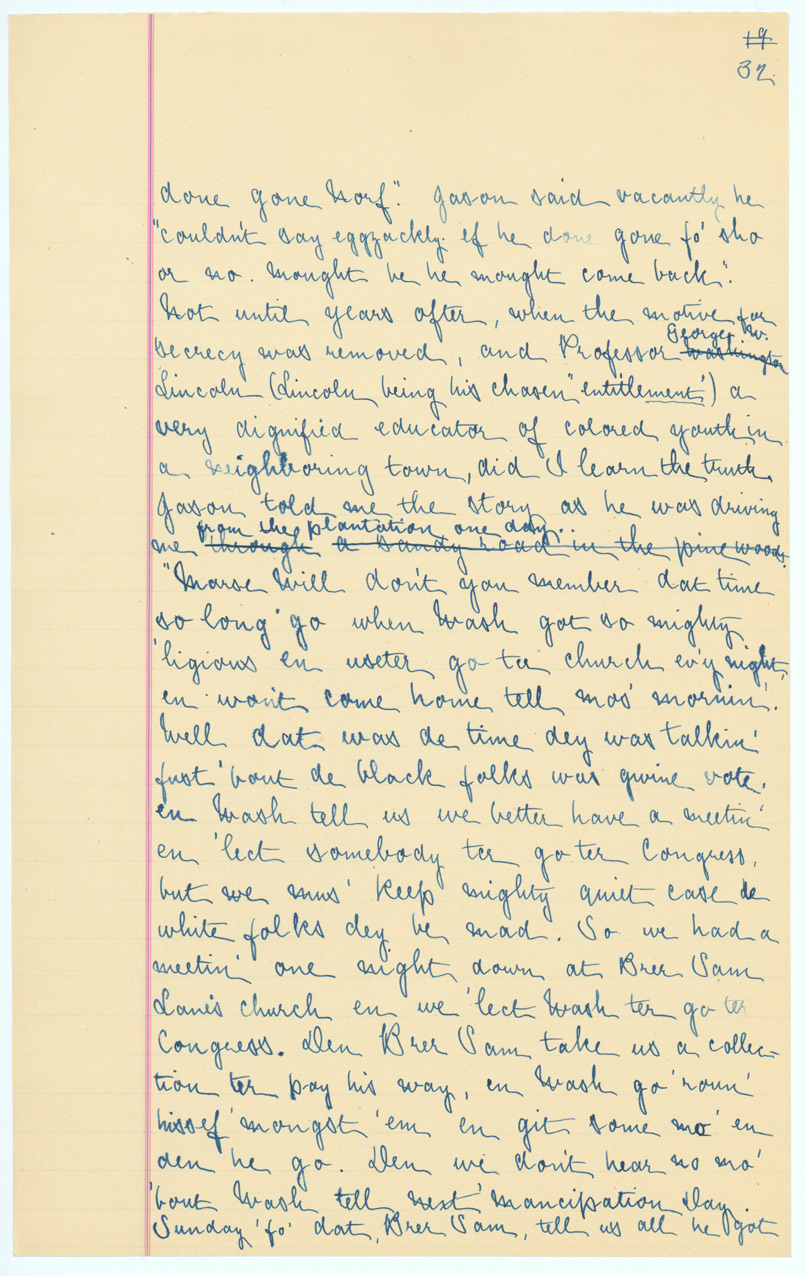 19
32.
done gone Norf." Jason said vacantly he
"couldn't say eggzackly ef he done gone fo' sho
or no. Mought be he mought come back".
Not until years after, when the motive for
George W.
secrecy was removed, and Professor Washington
Lincoln (Lincoln being his chosen "entitlement") a
very dignified educator of colored youth in
a neighboring town, did I learn the truth.
Jason told me the story as he was driving
from the plantation one day..
me through a sandy road in the pine woods.
"Marse Will don't you member dat time
so long 'go when Wash got so mighty
'ligious en useter go ter church ev'y night,
en won't come home tell mos' mornin'.
Well dat was de time dey was talkin'
fust 'bout de black folks was gwine vote.
en Wash tell us we better have a meetin'
en 'lect somebody ter go ter Congress,
but we mus' keep mighty quiet case de
white folks dey be mad. So we had a
meetin' one night down at Brer Sam
Lane's church en we 'lect Wash ter go ter
Congress. Den Brer Sam take us a collec-
tion ter pay his way, en Wash go 'roun'
hissef 'mongst 'em en git some mo' en
den he go. Den we don't hear no mo'
'bout Wash tell next 'mancipation Day.
Sunday 'fo' dat, Brer Sam, tell us all he got